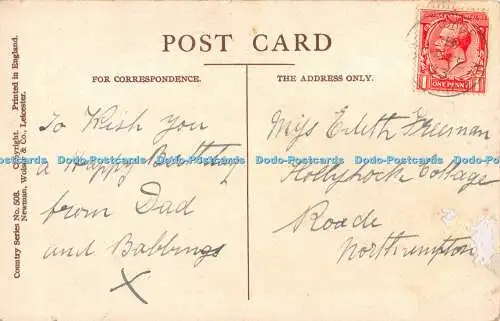 POST CARD
FOR CORRESPONDENCE.
THE ADDRESS ONLY.
Country Series No. 508. Copyright. Printed in England.
Newman, & Co., Leicester.
To Wish you
a Happy Birthday
from Dad
and Babbings
X
Miss Edith Freeman
Hollyhock Cottage
Roade
Northampton
ONE PENNY
Dodo-Postcards Dodo-Postcards Dodo-Postcards Dodo-Postcards Dodo-Postcards